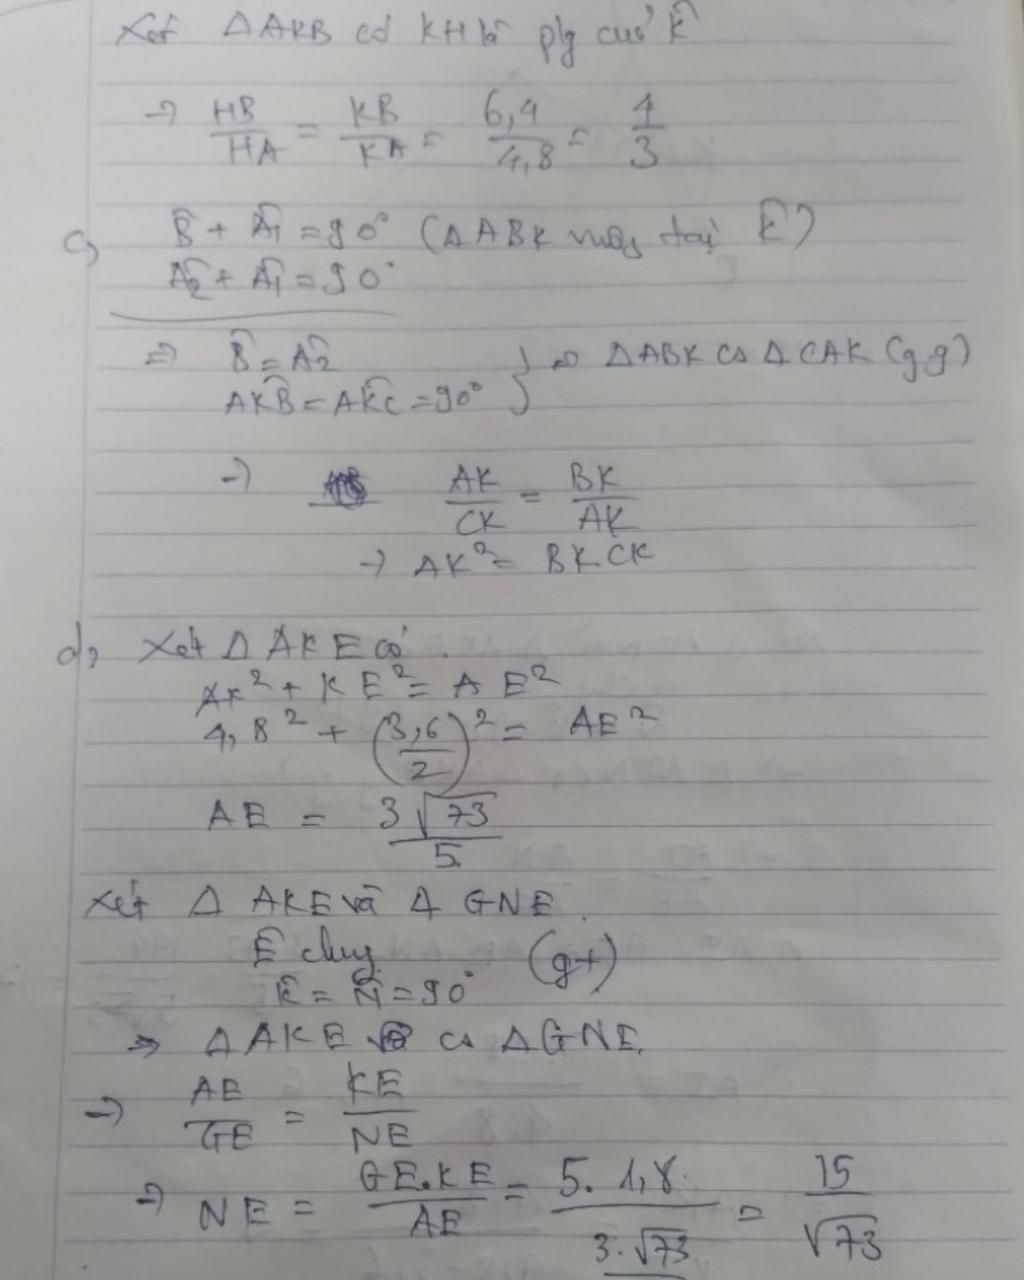 Xét ΔAKB có KH là p/g của K̂
→ HB/HA = KB/KA = 6,4/4,8 = 4/3
c, B̂ + Â1 = 90° (ΔABK vuông tại K̂)
Â2 + Â1 = 90°
⇒ B̂ = Â2
AK̂B = AK̂C = 90° } ⇒ ΔABK ∽ ΔCAK (g.g)
→ AK/CK = BK/AK
→ AK² = BK.CK
d, Xét ΔAKE có
AK² + KE² = AE²
4,8² + (3,6/2)² = AE²
AE = 3√73/5
Xét ΔAKE và ΔGNE.
Ê chung
K̂ = N̂ = 90° (gt)
⇒ ΔAKE ∽ ΔGNE.
→ AE/GE = KE/NE
→ NE = GE.KE/AE = 5.1,8/3.√73 = 15/√73